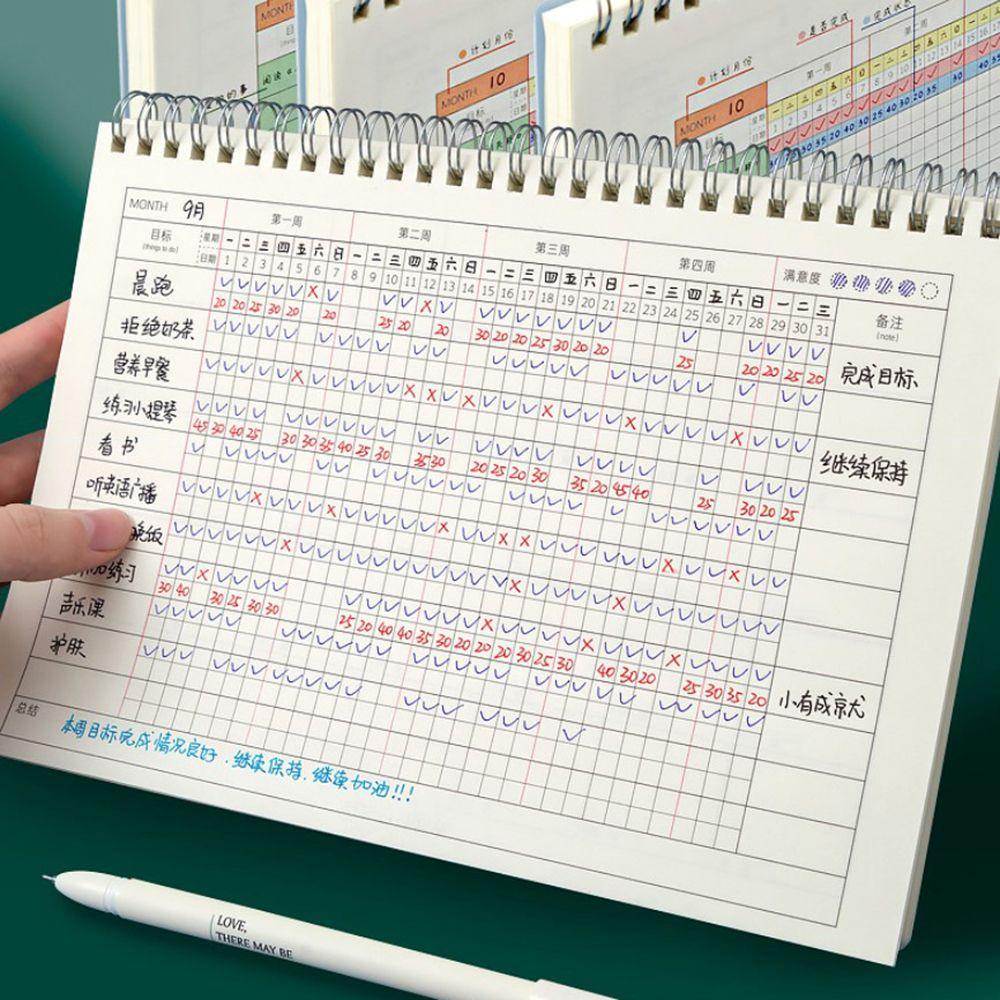 MONTH
计划月份
MONTH 10
计划月份
MONTH 10
是否完成
完成状态
第一周
MONTH 9月 第一周 第二周 第三周 第四周 满意度
目标 (things to do) 星期 一 二 三 四 五 六 日 一 二 三 四 五 六 日 一 二 三 四 五 六 日 一 二 三 四 五 六 日 一 二 三 备注 (note)
日期 1 2 3 4 5 6 7 8 9 10 11 12 13 14 15 16 17 18 19 20 21 22 23 24 25 26 27 28 29 30 31
晨跑
20 20 25 30 20 20 25 20 20 30 20 20 25 30 20 20 25 20 20 25 20 完成目标
拒绝奶茶
营养早餐
练习小提琴
45 30 40 25 30 30 35 40 25 30 35 30 20 25 20 30 35 20 45 40 25 30 20 25 继续保持
看书
听英语广播
晚饭
练习
30 40 30 25 30 30 25 20 40 40 35 30 20 20 20 30 25 30 40 30 20 25 30 35 20 小有成就
声乐课
护肤
总结
本周目标完成情况良好,继续保持,继续加油!!!
LOVE,
THERE MAY BE